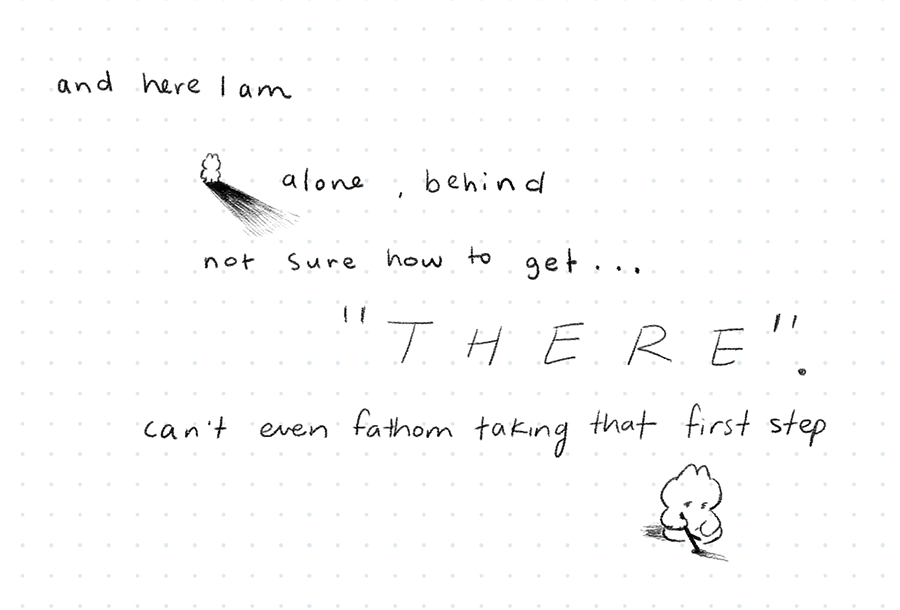 and here I am
alone, behind
not sure how to get...
"THERE".
can't even fathom taking that first step